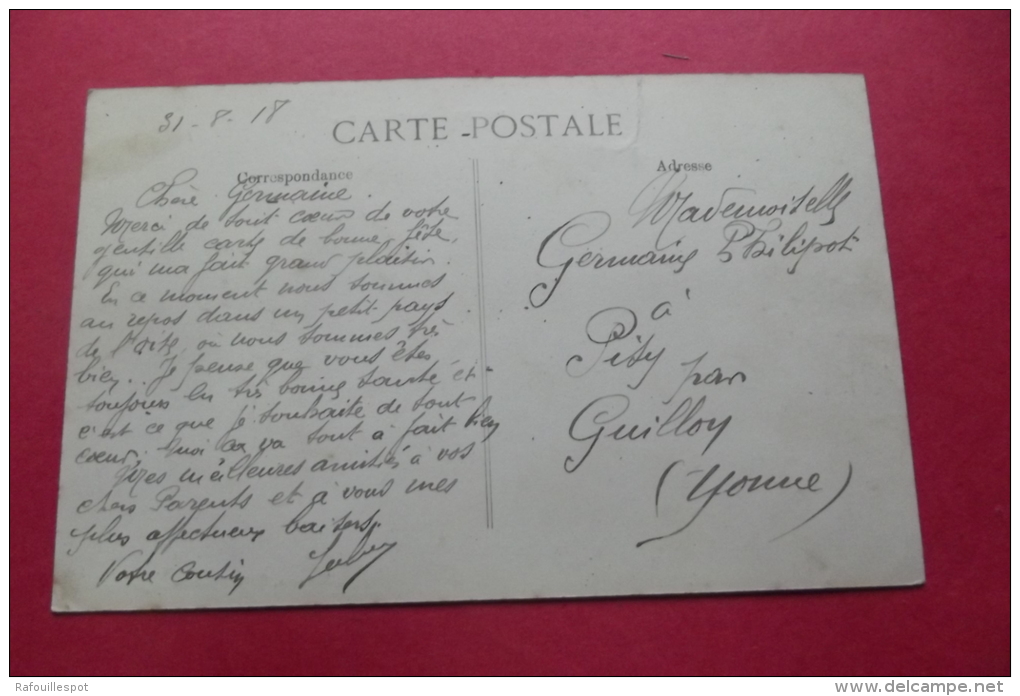 31-8-18
CARTE-POSTALE
Correspondance
Adresse
Chère Germaine.
Merci de tout cœur de votre
gentille carte de bonne fête,
qui ma fait grand plaisir.
En ce moment nous sommes
au repos dans un petit pays
de l'Oise, où nous sommes très
bien.. Je pense que vous êtes
toujours en très bonne santé et
c'est ce que je souhaite de tout
cœur. Moi ça va tout à fait bien
Mes meilleures amitiés à vos
chers Parents et à vous mes
plus affectueux baisers.
Votre cousin
Mademoiselle
Germaine Philipot
à
Pisy
par
Guillon
(Yonne)
Rafouillespot
www.delcampe.net